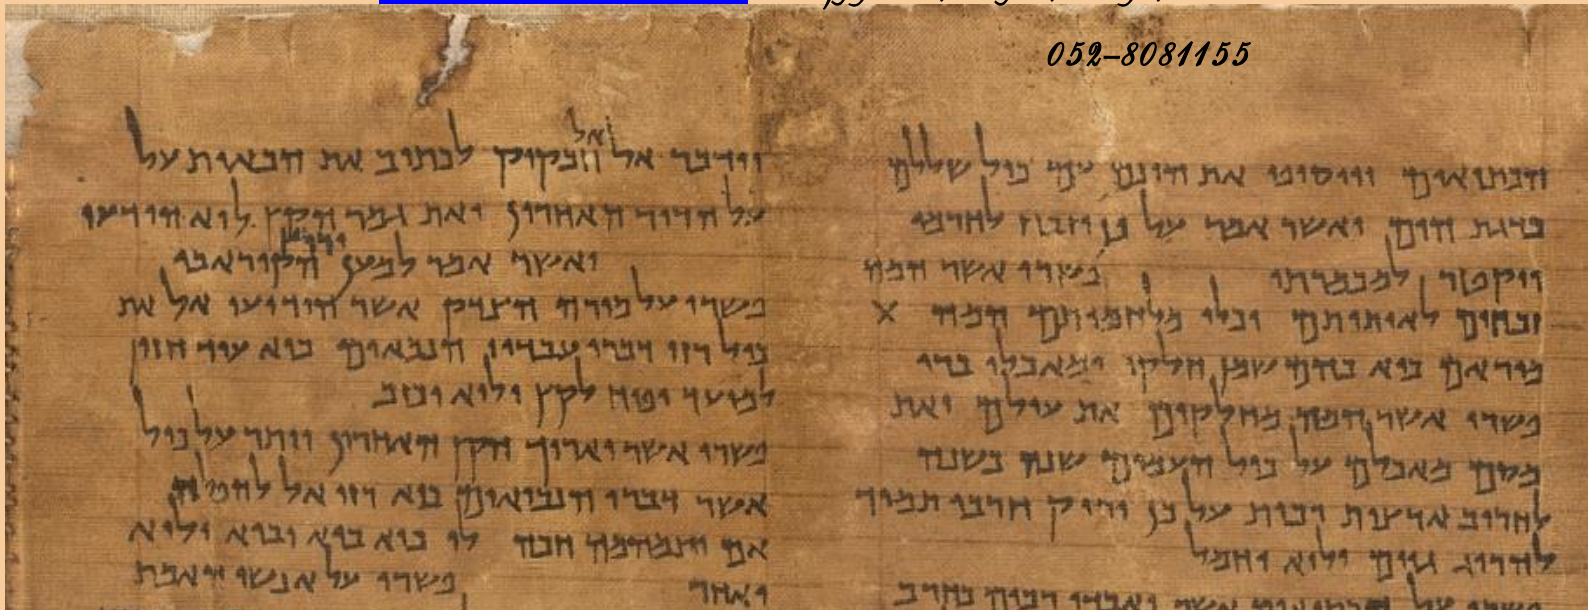 052-8081155
הכתיאים ויוסיפו את הונם עם כול שללם
כדגת הים ואשר אמר על כן יזבח לחרמו
ויקטר למכמרתו פשרו אשר המה
זבחים לאותותם וכלי מלחמותם המה X
מוראם כיא בהם שמן חלקו ומאכלו ברי
פשרו אשר המה מחלקים את עולם ואת
מסם מאכלם על כול העמים שנה בשנה
לחריב ארצות רבות על כן יריק חרבו תמיד
להרוג גוים ולוא יחמל
פשרו על הכתיאים אשר יאבדו רבים בחרב
וידבר אל אל חבקוק לכתוב את הבאות על
על הדור האחרון ואת גמר הקץ לוא הודעו
ואשר אמר למען ירוץ הקורא בו
פשרו על מורה הצדק אשר הודיעו אל את
כול רזי דברי עבדיו הנבאים כיא עוד חזון
למועד יפיח לקץ ולוא יכזב
פשרו אשר יארוך הקץ האחרון ויתר על כול
אשר דברו הנביאים כיא רזי אל להפלה
אם יתמהמה חכה לו כיא בוא יבוא ולוא
יאחר פשרו על אנשי האמת